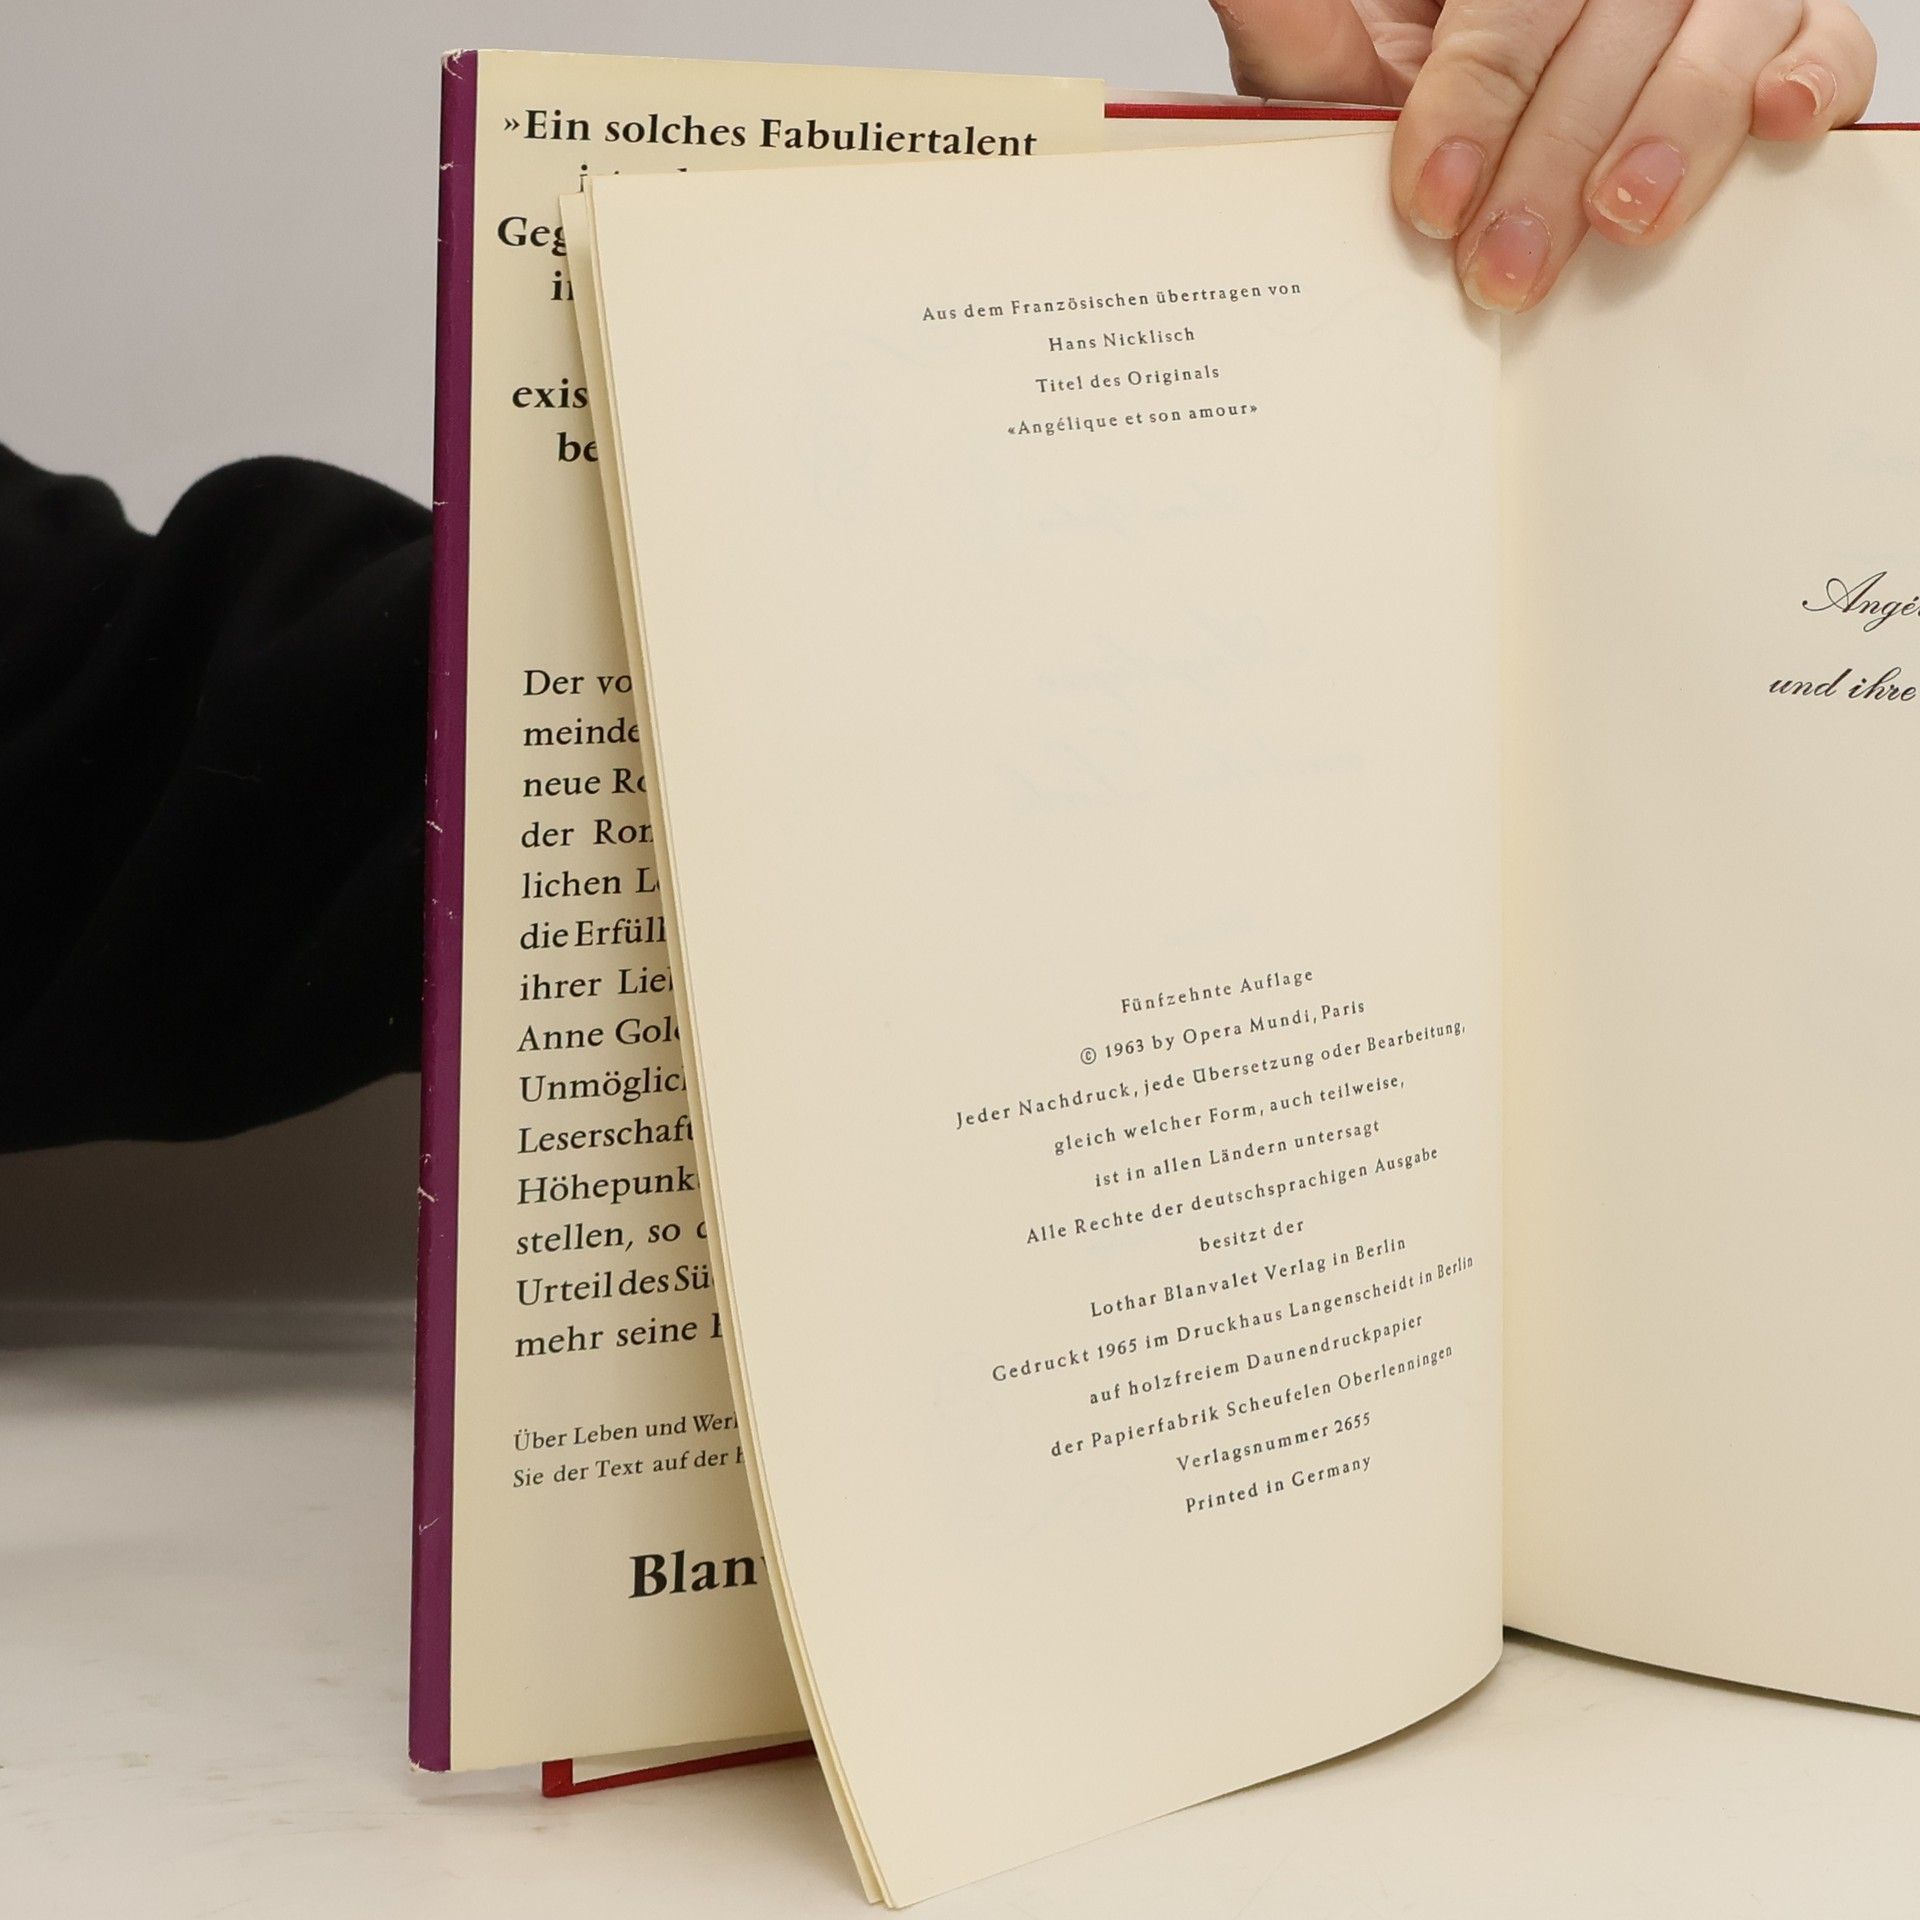 »Ein solches Fabuliertalent
exis
be
Der vo
meinde
neue Ro
der Ror
lichen L
die Erfüll
ihrer Lie
Anne Gol
Unmöglic
Leserschaft
Höhepunk
stellen, so
Urteil des Sü
mehr seine
Über Leben und Werk
Sie der Text auf der
Blan
Aus dem Französischen übertragen von
Hans Nicklisch
Titel des Originals
«Angélique et son amour»
Fünfzehnte Auflage
© 1963 by Opera Mundi, Paris
Jeder Nachdruck, jede Übersetzung oder Bearbeitung,
gleich welcher Form, auch teilweise,
ist in allen Ländern untersagt
Alle Rechte der deutschsprachigen Ausgabe
besitzt der
Lothar Blanvalet Verlag in Berlin
Gedruckt 1965 im Druckhaus Langenscheidt in Berlin
auf holzfreiem Daunendruckpapier
der Papierfabrik Scheufelen Oberlenningen
Verlagsnummer 2655
Printed in Germany
Angé
und ihre